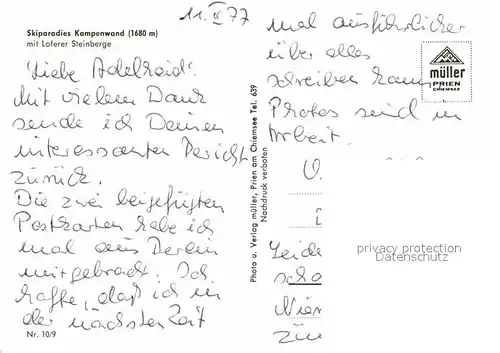 11. II 77
Skiparadies Kampenwand (1680 m)
mit Loferer Steinberge
Liebe Adelheid!
Mit vielem Dank
sende ich Deinen
interessanten Bericht
zurück.
Die zwei beigefügten
Postkarten habe ich
mal aus Berlin
mitgebracht. Ich
hoffe, daß ich in
der nächsten Zeit
Nr. 10/9
Photo u. Verlag müller, Prien am Chiemsee Tel. 639
Nachdruck verboten
mal ausführlicher
über alles
schreiben kann.
Photos sind in
Arbeit.
müller
PRIEN
CHIEMSEE
Leide
scho
zu
privacy protection
Datenschutz